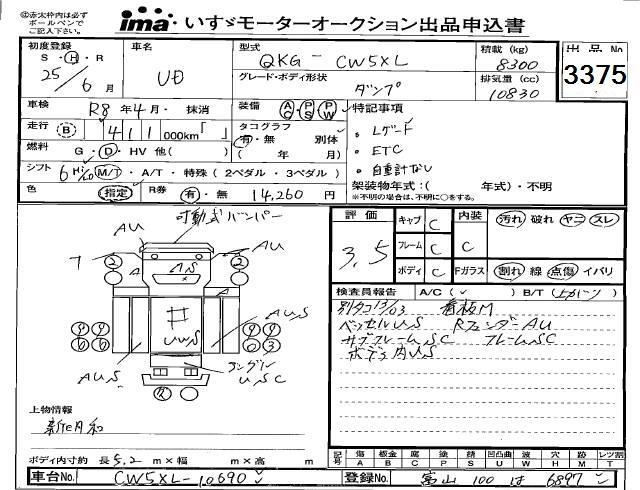 ②赤太枠内は必ず
ボールペンで
ご記入下さい。
ima いすゞモーターオークション出品申込書
初度登録 車名 型式 積載 (kg) 出品No
S・H・R UD QKG - CW5XL 8300 3375
25年 6月 グレード・ボディ形状 ダンプ 排気量 (cc) 10830
車検 R8年 4月・抹消 装備 AC PS PW 特記事項
走行 B 411 000km「 」 タコグラフ 有・無 別体 ( 年 月) ・Lゲート
燃料 G・D・HV 他( ) ・ETC
シフト 6 Hi/Lo M/T・A/T・特殊 (2ペダル・3ペダル) ・自重計なし
色 指定 R券 有・無 14,260円 架装物年式:( 年式)・不明
※不明の場合は、不明に○をする。
可動式バンパー
AU AU
ア 2 AS 2
A A
UWS AUS
AUS アングル
USC
評価 3.5 キャブ C 内装 C 汚れ 破れ ヤニ スレ
フレーム C
ボディ C Fガラス 割れ 線 点傷 イバリ
検査員報告 A/C( ✓ ) B/T( )
別タコ13/03 看板M
ベッセルUS RフェンダーAU
サブフレームSC フレームSC
ボディ内US
上物情報
新明和
ボディ内寸約 長5.2 m×幅 m×高 m
記号 傷A 板金B 腐C 塗P 錆S 凹凸U 曲W 穴H 跡M レンズ割T
車台No. CW5XL-10690 登録No. 富山 100 は 6897